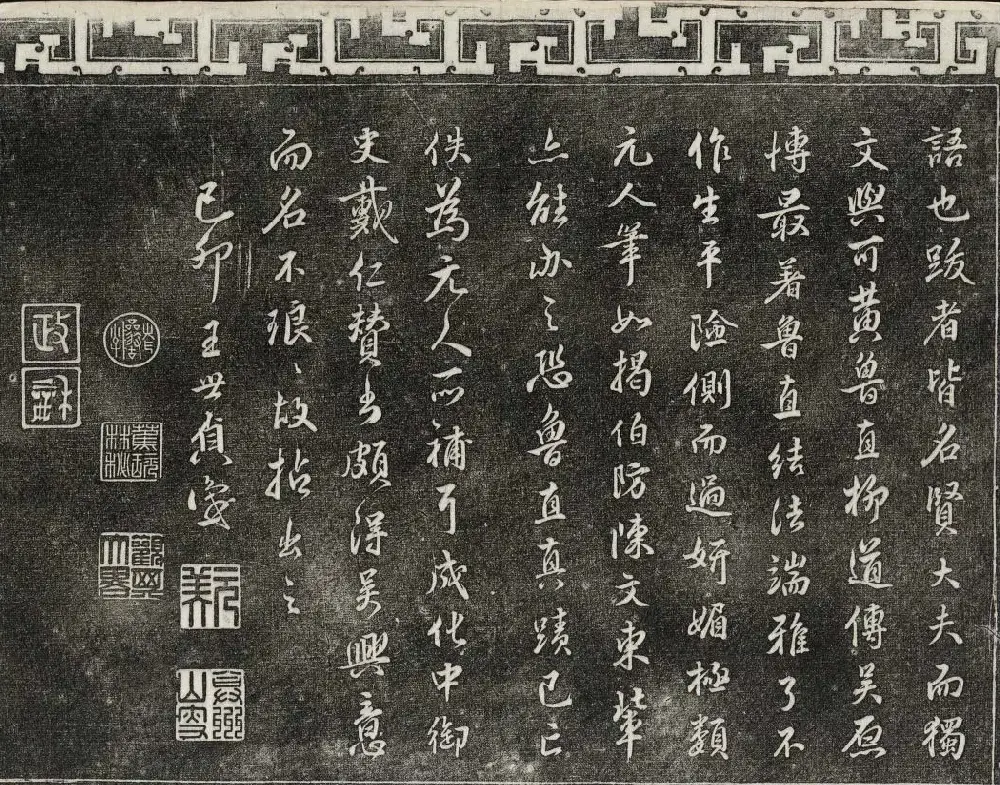 語也跋者皆名賢大夫而獨
文與可黃魯直柳道傳吳原
博最著魯直結法端雅了不
作生平險側而過妍媚極類
元人筆如揭伯防陳文東輩
亦能辦之恐魯直真蹟已亡
佚為元人所補耳成化中御
史戴仁贊書頗得吳興意
而名不琅〻故拈出之
己卯王世貞識